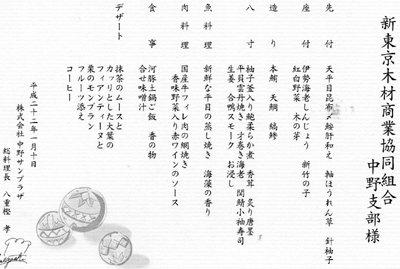 新東京木材商業協同組合
中野支部様
先付 天平目昆布〆絵肝和え 軸ほうれん草 針柚子
座付 伊勢海老しんじょう 新竹の子
紅白野菜 木の芽
造り 本鮪 天鯛 縞鯵
八寸 柚子釜入り鮑柔らか煮 香茸 炙り唐墨
平貝雲丹焼き 海老才巻き 関鯖小袖寿司
生姜 合鴨スモーク お浸し
魚料理 新鮮な平目の蒸し焼き 海藻の香り
肉料理 国産牛フィレ肉の網焼き
香味野菜入り赤ワインのソース
食事 河豚土鍋ご飯 香の物
合せ味噌汁
デザート 抹茶のムースと
カリッとした大葉の
フィアンティーヌと
栗のモンブラン
フルーツ添え
コーヒー
平成二十二年一月十日
株式会社 中野サンプラザ
総料理長 八重樫 孝